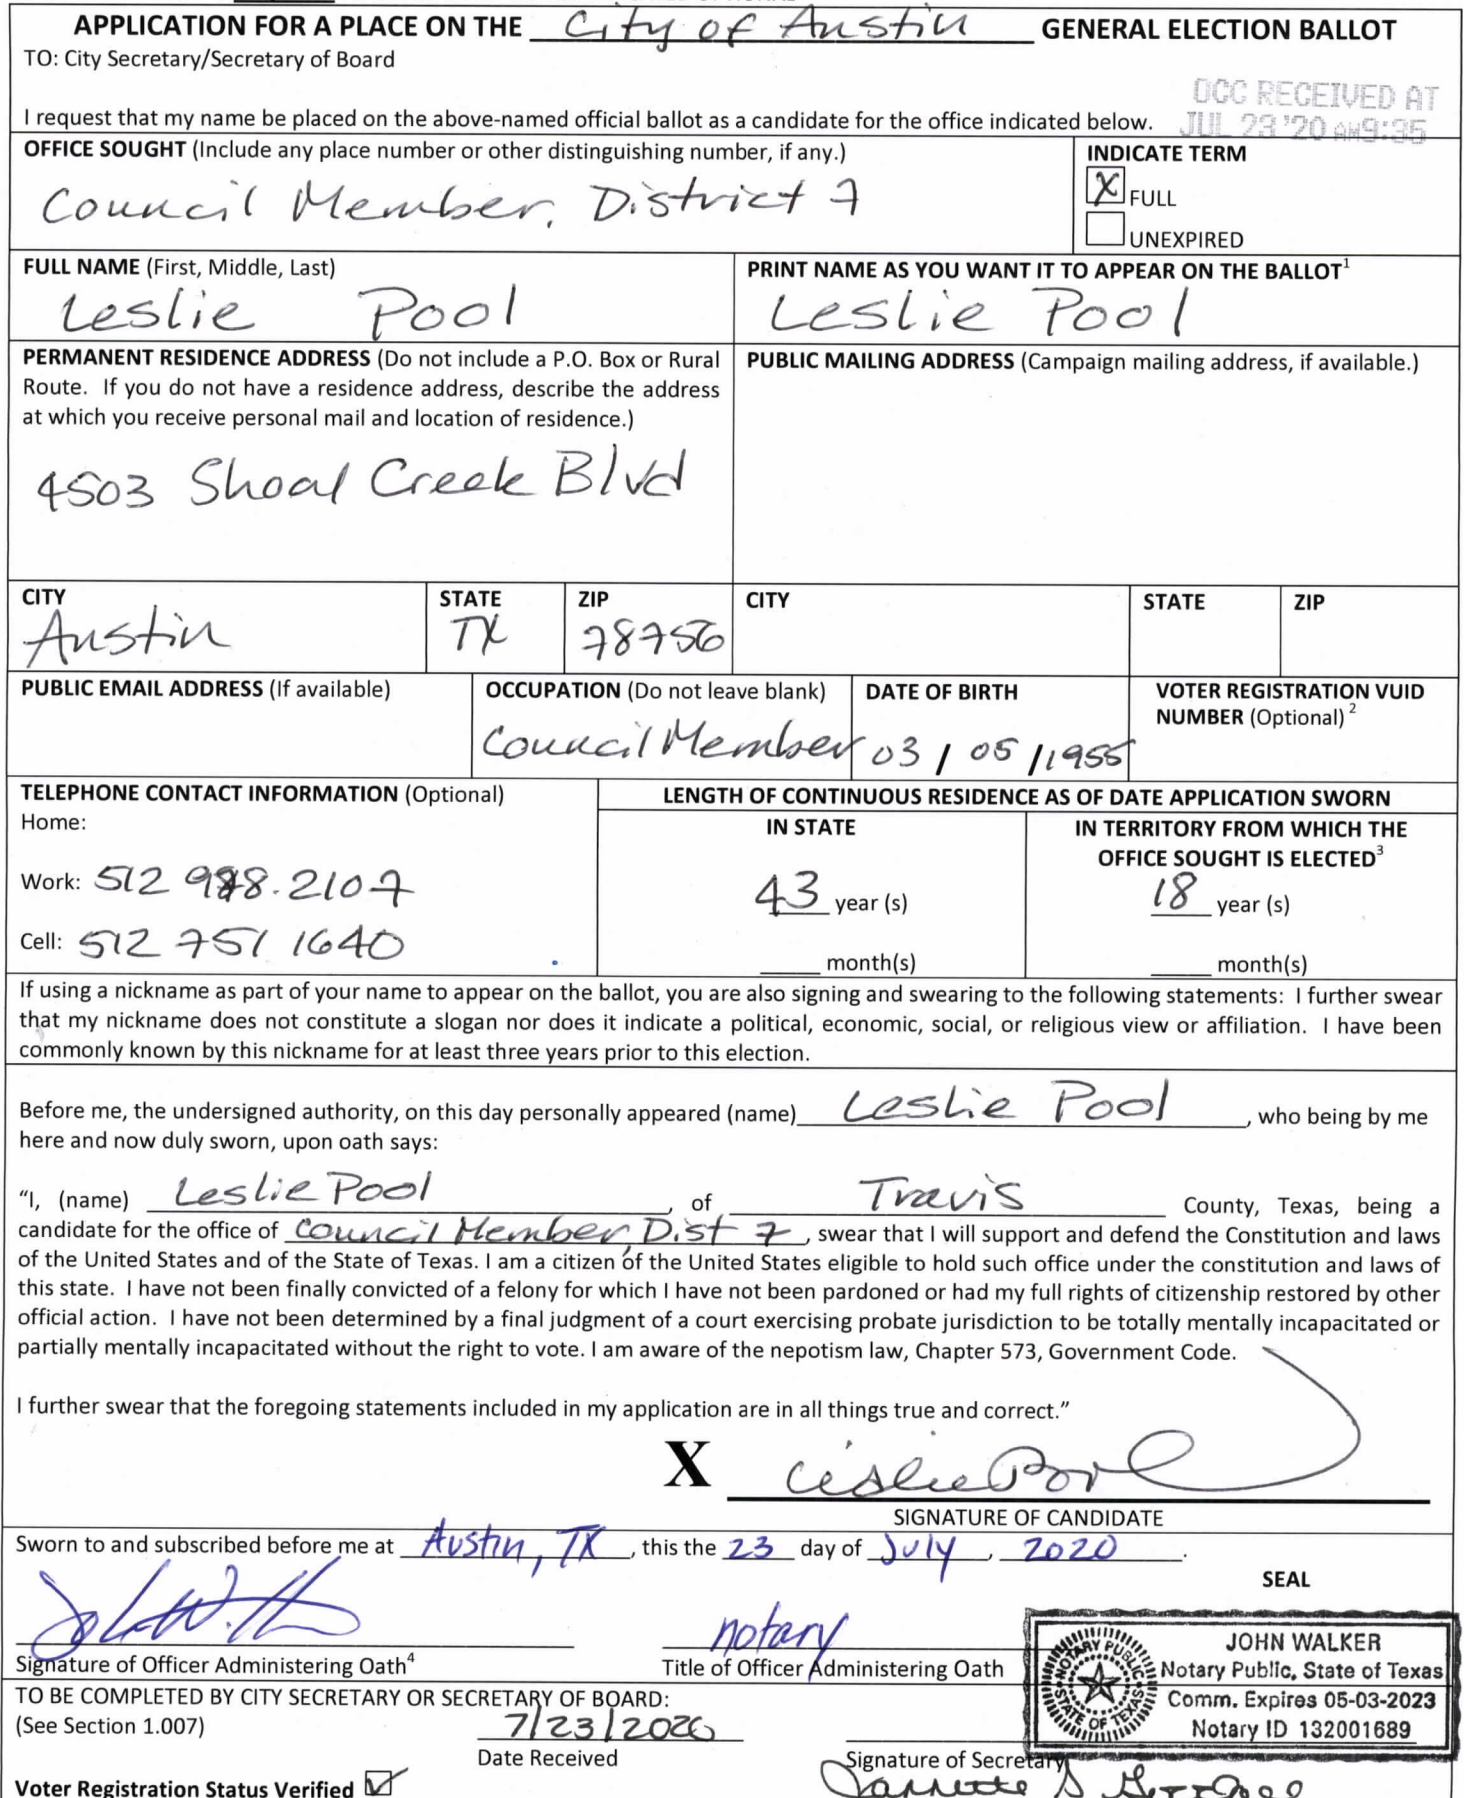 APPLICATION FOR A PLACE ON THE City of Austin GENERAL ELECTION BALLOT
TO: City Secretary/Secretary of Board
OCC RECEIVED AT
I request that my name be placed on the above-named official ballot as a candidate for the office indicated below. JUL 23 '20 AM9:35
OFFICE SOUGHT (Include any place number or other distinguishing number, if any.) INDICATE TERM
Council Member, District 7 X FULL
UNEXPIRED
FULL NAME (First, Middle, Last) PRINT NAME AS YOU WANT IT TO APPEAR ON THE BALLOT1
Leslie Pool Leslie Pool
PERMANENT RESIDENCE ADDRESS (Do not include a P.O. Box or Rural PUBLIC MAILING ADDRESS (Campaign mailing address, if available.)
Route. If you do not have a residence address, describe the address
at which you receive personal mail and location of residence.)
4503 Shoal Creek Blvd
CITY STATE ZIP CITY STATE ZIP
Austin TX 78756
PUBLIC EMAIL ADDRESS (If available) OCCUPATION (Do not leave blank) DATE OF BIRTH VOTER REGISTRATION VUID
NUMBER (Optional) 2
Council Member 03 / 05 /1955
TELEPHONE CONTACT INFORMATION (Optional) LENGTH OF CONTINUOUS RESIDENCE AS OF DATE APPLICATION SWORN
Home: IN STATE IN TERRITORY FROM WHICH THE
OFFICE SOUGHT IS ELECTED3
Work: 512 978.2107 43 year (s) 18 year (s)
Cell: 512 751 1640
month(s) month(s)
If using a nickname as part of your name to appear on the ballot, you are also signing and swearing to the following statements: I further swear
that my nickname does not constitute a slogan nor does it indicate a political, economic, social, or religious view or affiliation. I have been
commonly known by this nickname for at least three years prior to this election.
Before me, the undersigned authority, on this day personally appeared (name) Leslie Pool, who being by me
here and now duly sworn, upon oath says:
"I, (name) Leslie Pool, of Travis County, Texas, being a
candidate for the office of Council Member, Dist 7, swear that I will support and defend the Constitution and laws
of the United States and of the State of Texas. I am a citizen of the United States eligible to hold such office under the constitution and laws of
this state. I have not been finally convicted of a felony for which I have not been pardoned or had my full rights of citizenship restored by other
official action. I have not been determined by a final judgment of a court exercising probate jurisdiction to be totally mentally incapacitated or
partially mentally incapacitated without the right to vote. I am aware of the nepotism law, Chapter 573, Government Code.
I further swear that the foregoing statements included in my application are in all things true and correct."
X Leslie Pool
SIGNATURE OF CANDIDATE
Sworn to and subscribed before me at Austin, TX, this the 23 day of July, 2020.
SEAL
notary
Signature of Officer Administering Oath4 Title of Officer Administering Oath
NOTARY PUBLIC STATE OF TEXAS
JOHN WALKER
Notary Public, State of Texas
Comm. Expires 05-03-2023
Notary ID 132001689
TO BE COMPLETED BY CITY SECRETARY OR SECRETARY OF BOARD:
(See Section 1.007) 7/23/2020
Date Received Signature of Secretary
Voter Registration Status Verified ☑ Jannette S